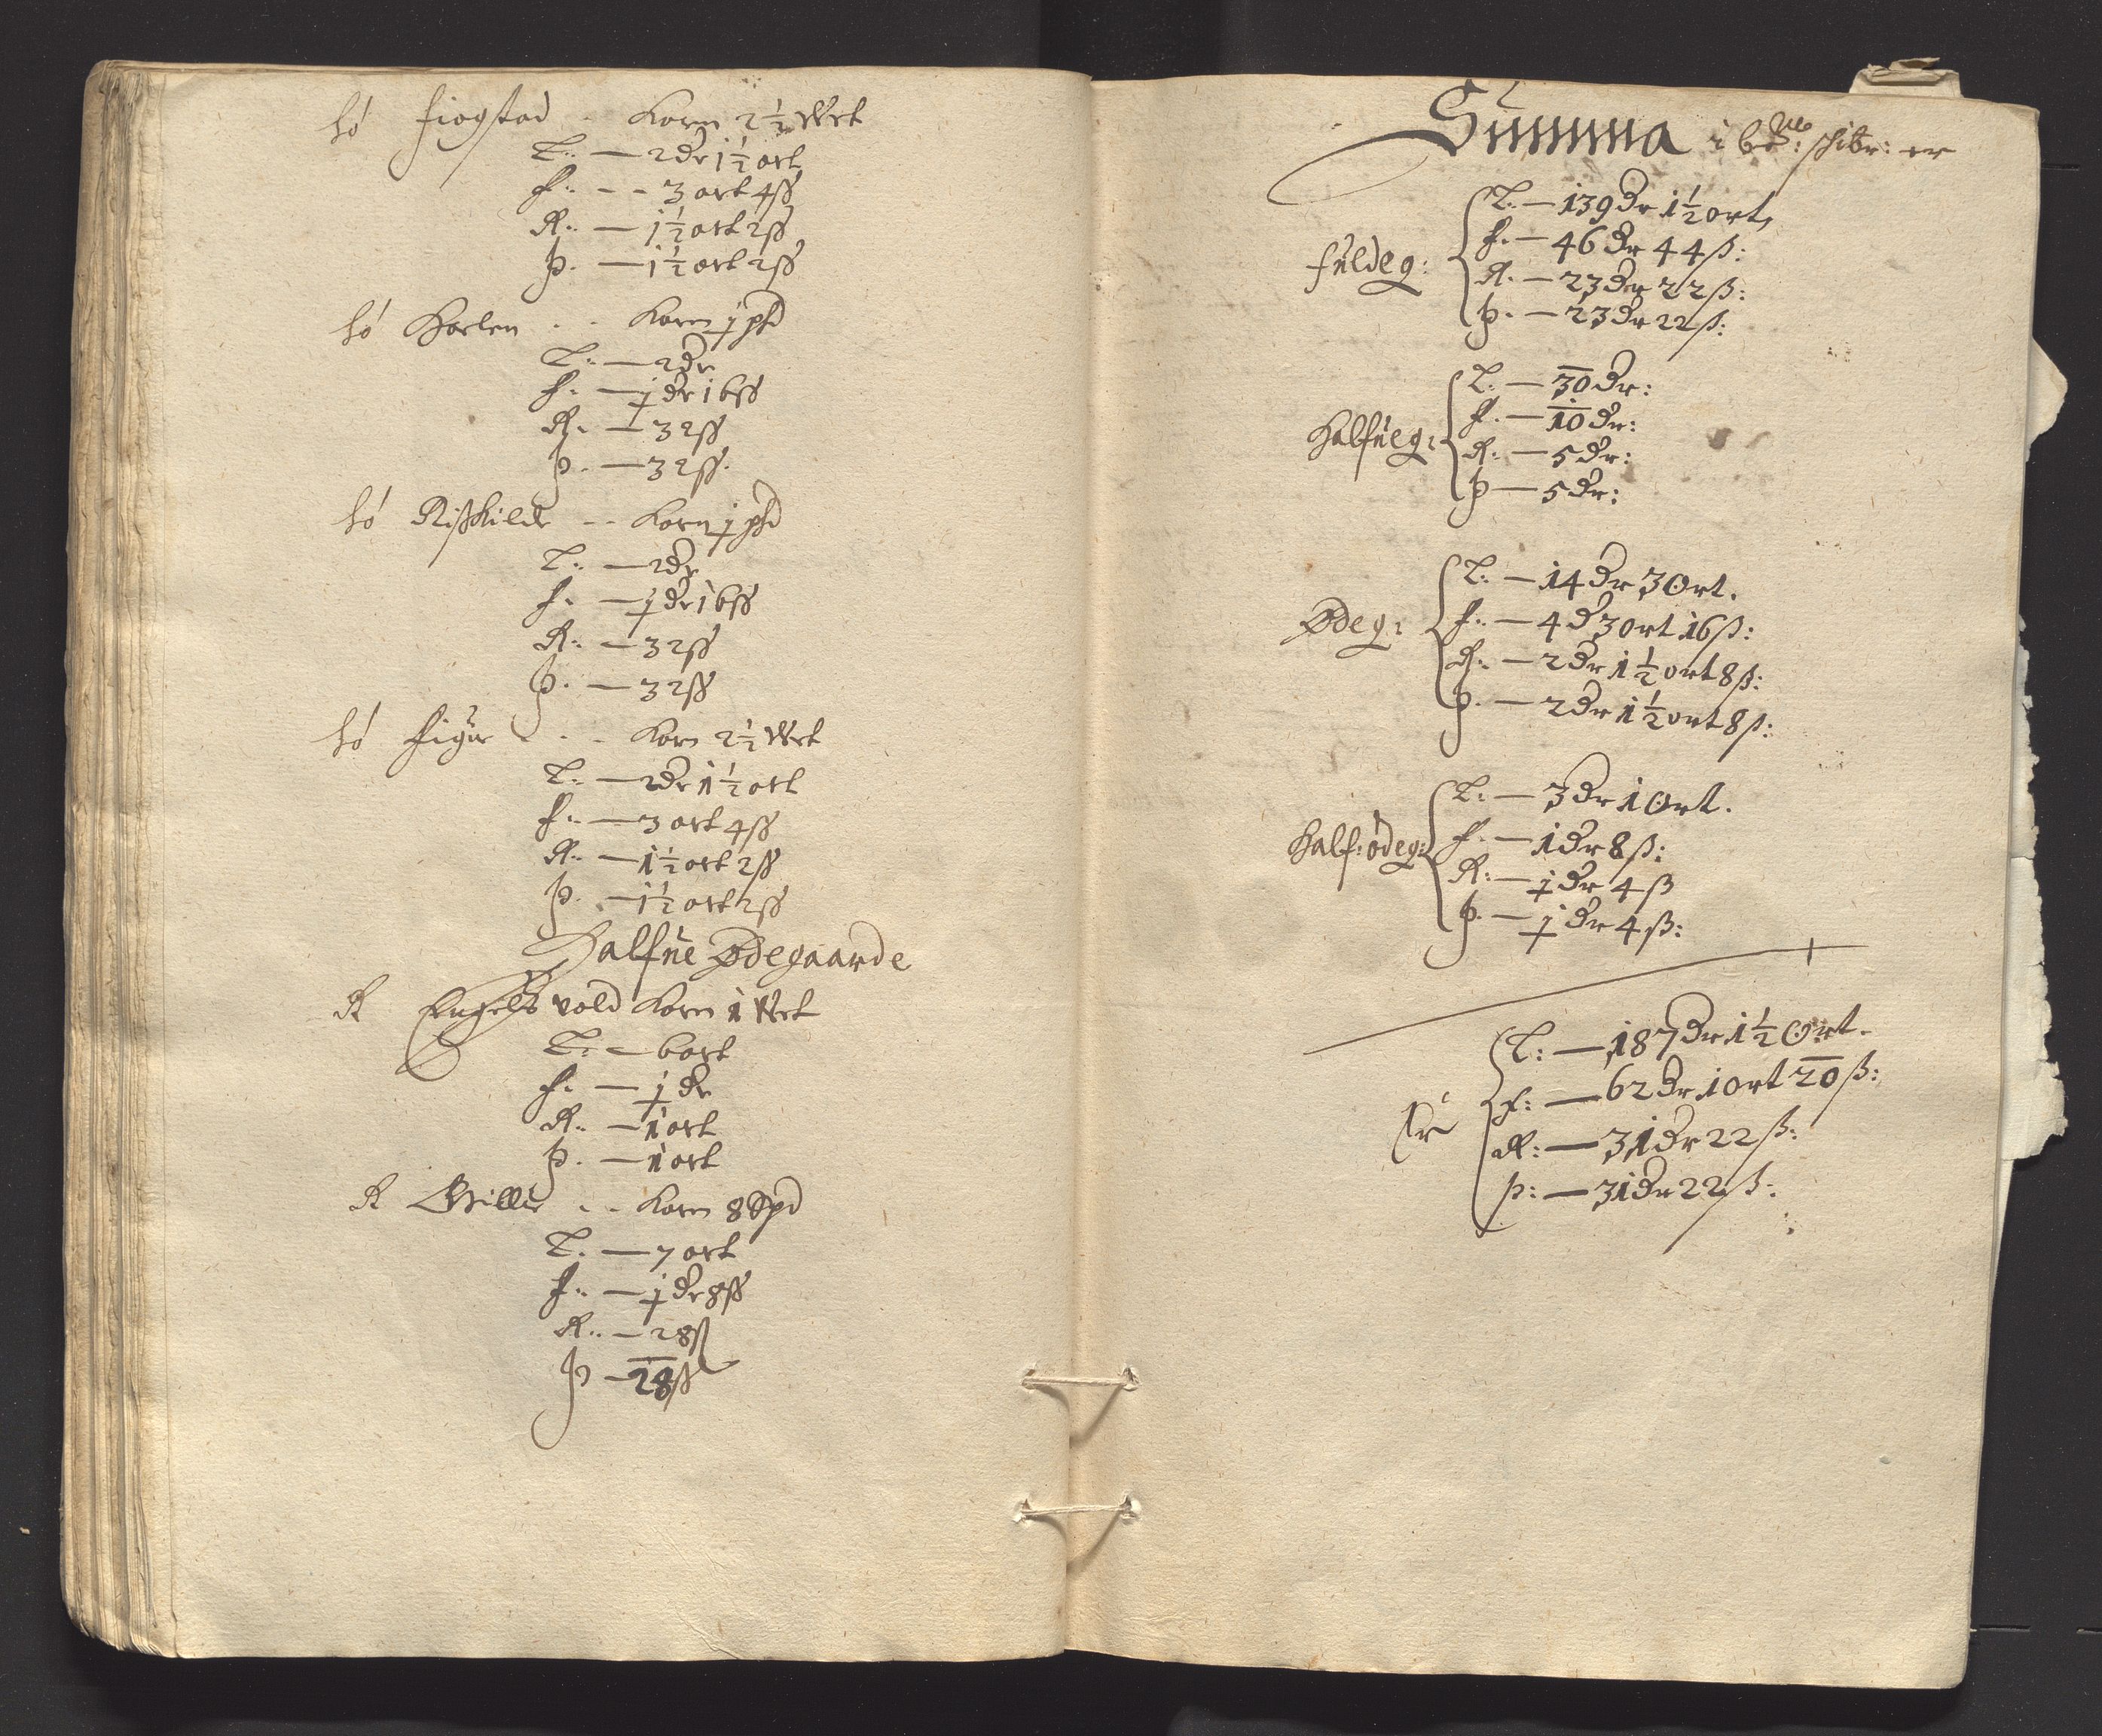 hó fiogstad - Korn 2½ Wet
L: — 2 dr 1½ ort
f: - - 3 ort 4 ß
R: — 1½ ort 2 ß
þ. — 1½ ort 2 ß
hó Horlen - - Korn j pd
L: — 2 dr
f: — j dr 16 ß
R: — 32 ß
þ. — 32 ß
hó Rißkilde - - Korn j pd
L: — 2 dr
f. — j dr 16 ß
R: — 32 ß
þ. — 32 ß
hó - - Korn 2½ Wet
L: — 2 dr 1½ ort
f: — 3 ort 4 ß
R: — 1½ ort 2 ß
þ. — 1½ ort 2 ß
Halfue Ødegaarde
R Engelsvold Korn 1 Wet
L: — 6 ort
f: — j dr
R: — 1 ort
þ. — 1 ort
R - - Korn 8 Spd
L: — 7 ort
f: — j dr 8 ß
R: — 28 ß
þ — 28 ß
Summa i be: schibr: er
fuldeg: L: — 139 dr 1½ ort,
f. — 46 dr 44 ß:
R. — 23 dr 22 ß:
þ. — 23 dr 22 ß:
Halfueg: L: — 30 dr:
f. — 10 dr:
R: — 5 dr:
þ — 5 dr:
Ødeg: L: — 14 dr 3 Ort.
f: — 4 d 3 ort 16 ß:
R: — 2 dr 1½ ort 8 ß:
þ. — 2 dr 1½ ort 8 ß:
Half: ødeg: L: — 3 dr 1 Ort.
f. — 1 dr 8 ß:
R: — j dr 4 ß
þ. — j dr 4 ß:
Er L: — 187 dr 1½ Ort.
f: — 62 dr 1 ort 20 ß:
R: — 31 dr 22 ß:
þ: — 31 dr 22 ß: